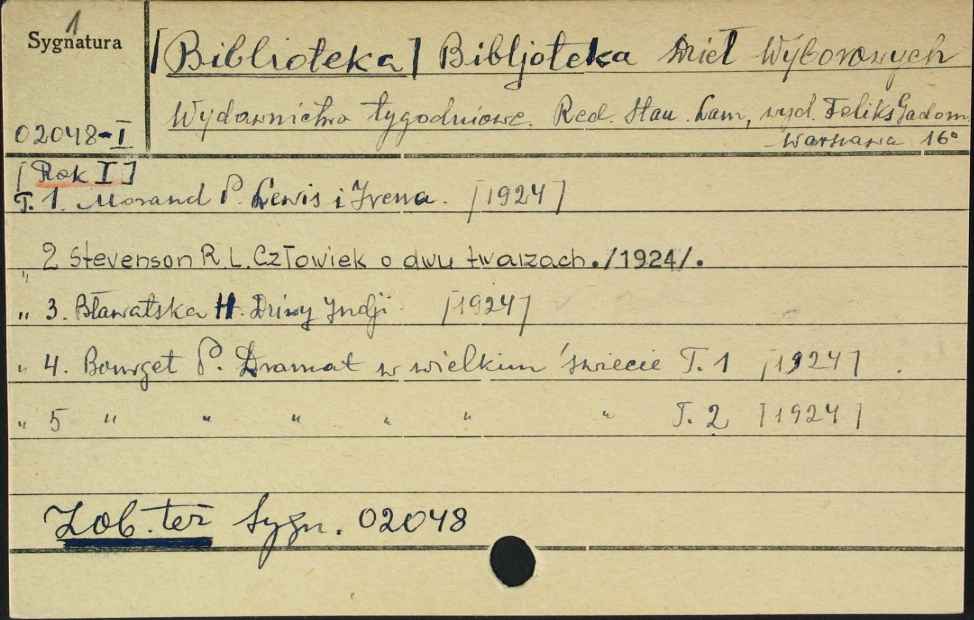 1
Sygnatura
[Biblioteka] Bibljoteka Dzieł Wyborowych
02048-I
Wydawnictwo tygodniowe. Red. Stan. Lam, wyd. Feliks Gadom.
Warszawa 16°
[Rok I]
T. 1. Morand P. Lewis i Irena. [1924]
" 2 Stevenson R. L. Człowiek o dwu twarzach. /1924/.
" 3. Bławatska H. Dziwy Indji. [1924]
" 4. Bourget P. Dramat w wielkim świecie T. 1 [1924] .
" 5 " " " " " " T. 2 [1924]
Zob. też Sygn. 02048